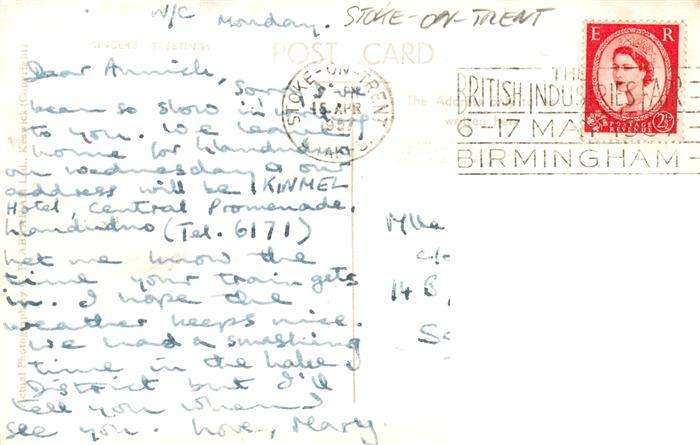 N/C
Monday.
STOKE-ON-TRENT
POST CARD
Dear Annick, Sorry
been so slow in
to you. We leaving
home for Llandudno
on Wednesday & our
address will be KINMEL
Hotel, Central Promenade,
Llandudno (Tel. 6171)
Let me know the
time your train gets
in. I hope the
weather keeps nice.
We had a smashing
time in the Lake
District but I'll
tell you when I
see you. Love, Mary.
STOKE-ON-TRENT
15 APR
E R
POSTAGE
REVENUE
2½
THE
BRITISH INDUSTRIES FAIR
6-17 MAY
BIRMINGHAM
The Address
Mlle
c/o
14 B